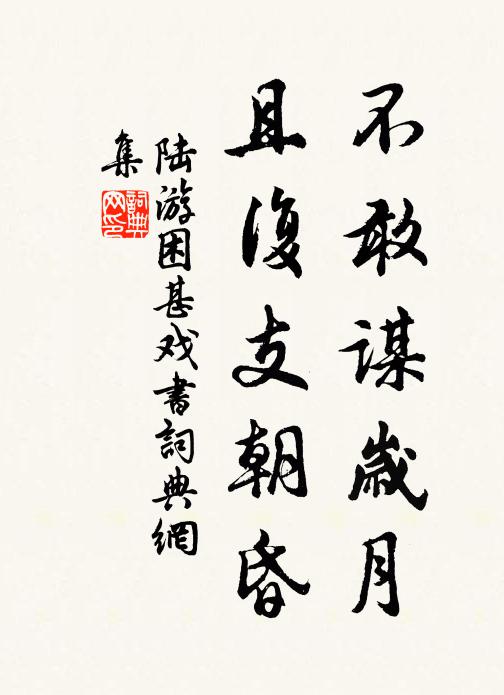 不敢謀歲月
且復支朝昏
陆游困甚戏書詞典網
集
詞典
网印